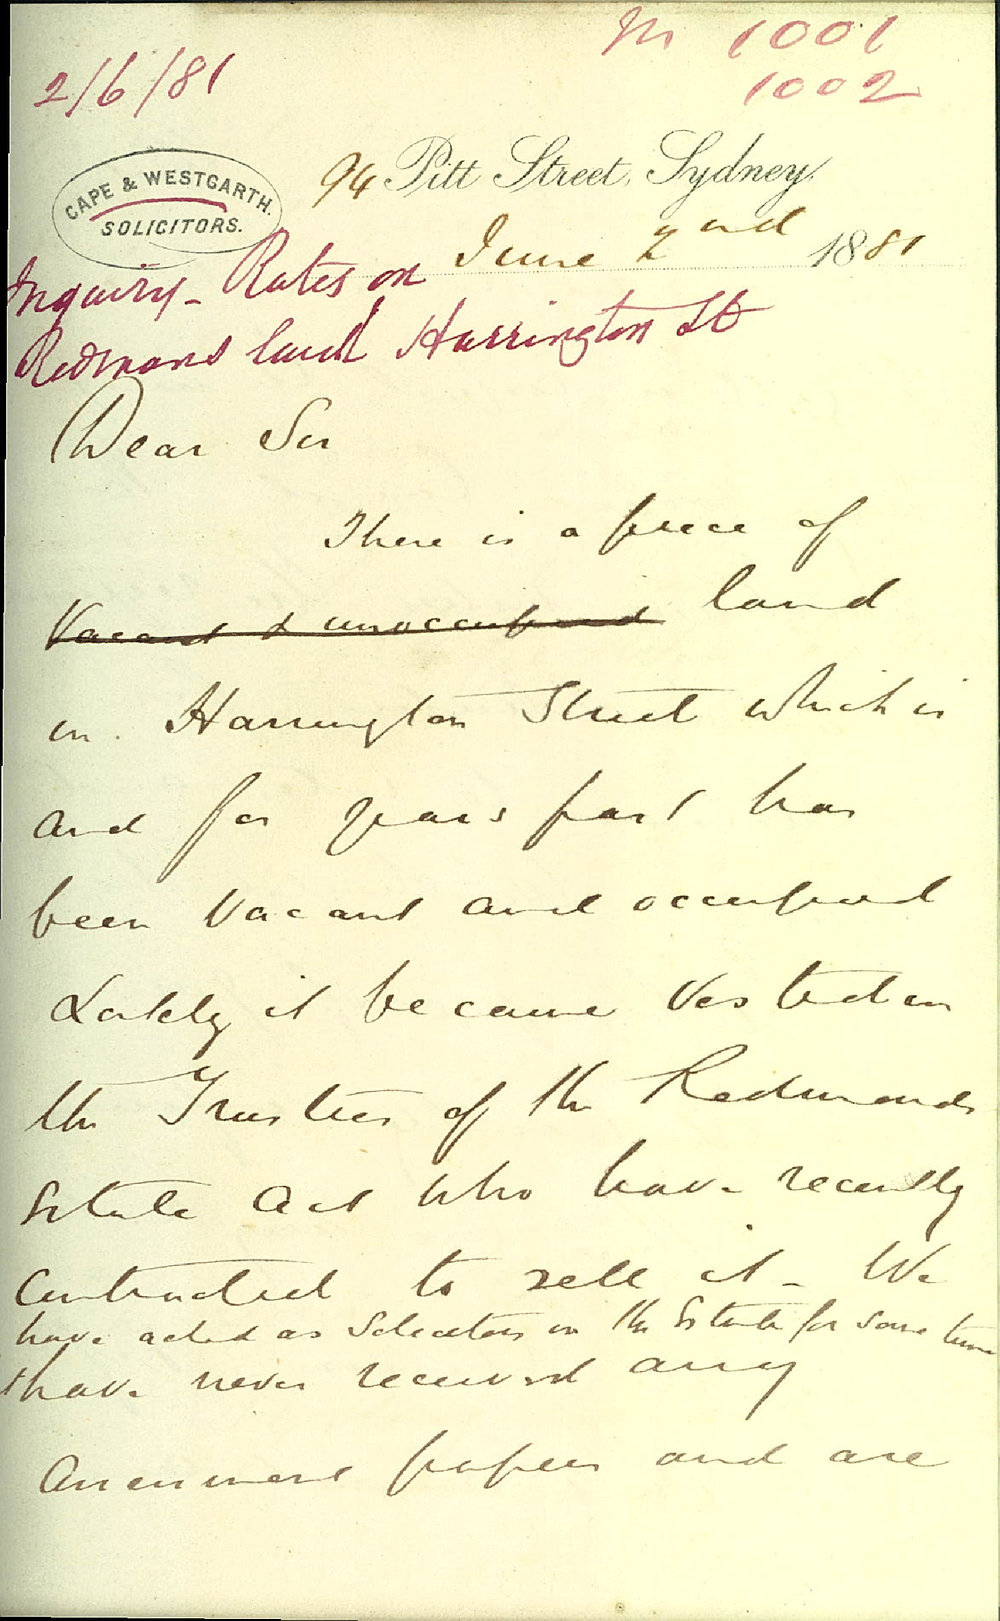 M 1001
1002
2/6/81
CAPE & WESTGARTH.
SOLICITORS.
94 Pitt Street, Sydney.
June 2nd 1881
Inquiry - Rates on
Redmans land Harrington St
Dear Sir
There is a piece of
Vacant & unoccupied land
in Harrington Street which is
and for years past has
been Vacant and occupied
Lately it became Vested in
the Trustees of the Redmonds
Estate Act who have recently
Contracted to sell it - We
have acted as Solicitors in the Estate for some time
& have never received any
Assessment papers and are